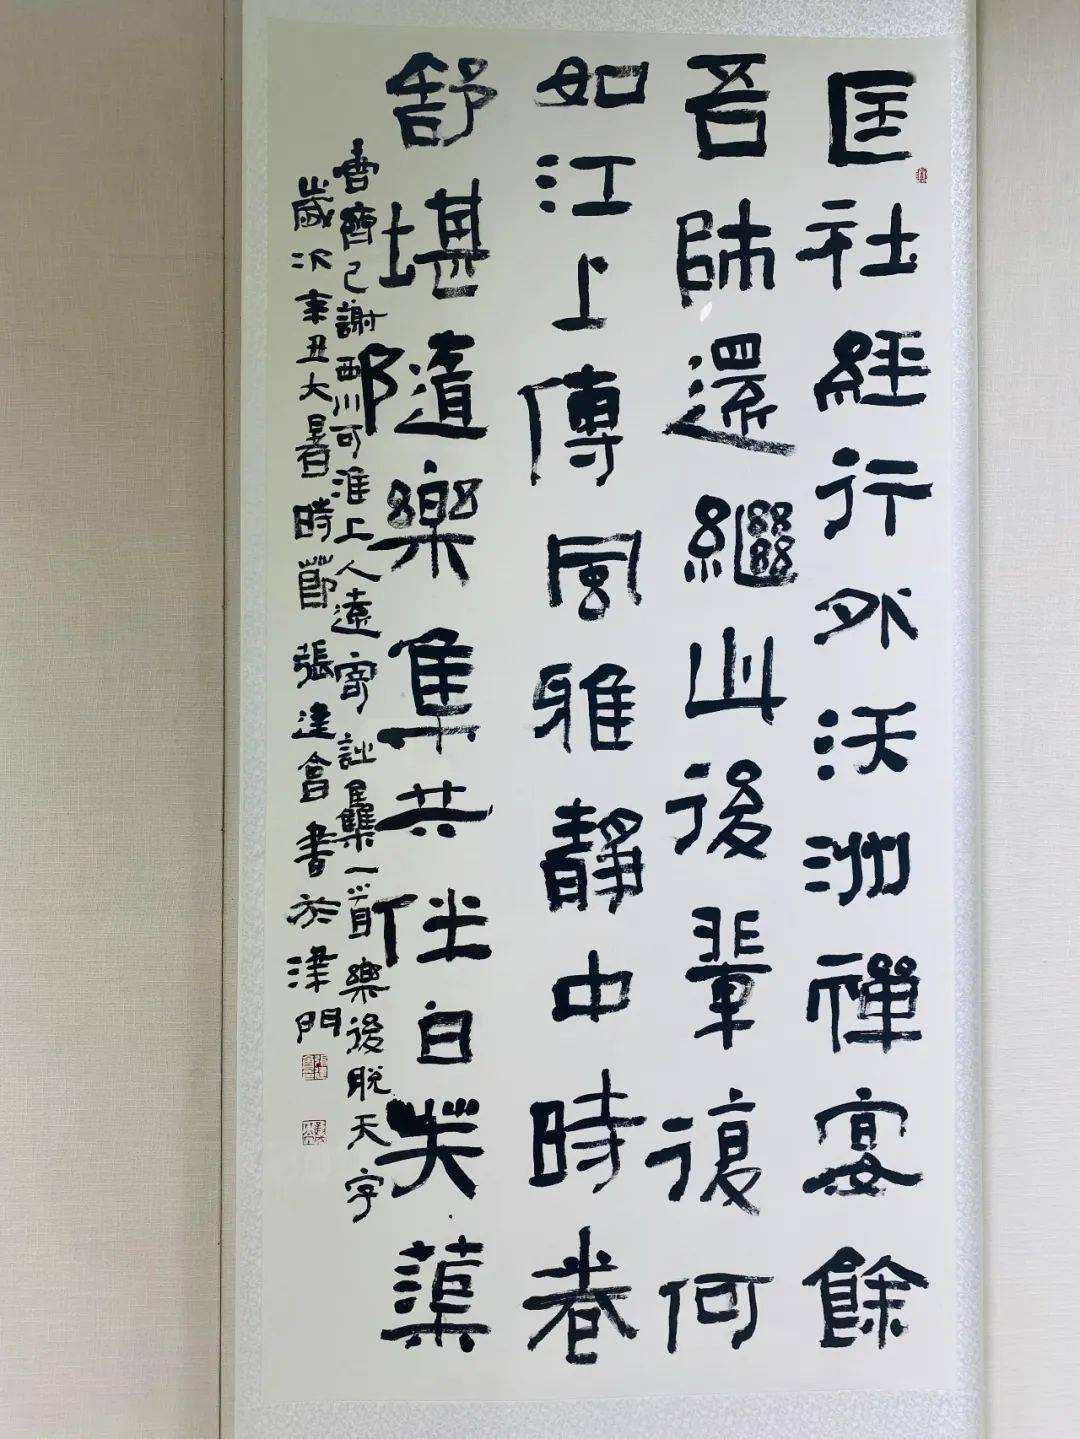 匡社經行外沃洲禪宴餘
吾師還繼此後輩復何
如江上傳風雅靜中時卷
舒堪隨樂集共伴白芙蕖
齊己謝西川可淮上人遠寄詩集一首樂後脫天字
歲次辛丑大暑時節張建會書於津門